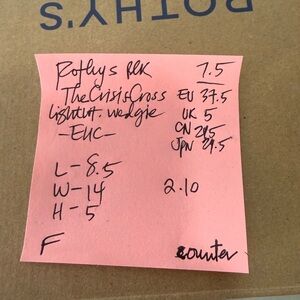 ROTHY'S
Rothys BLK 7.5
The CrissCross EU 37.5
Lightwt. wedgie UK 5
-EUC- CN
JPN 24.5
L - 8.5
W - 14 2.10
H - 5
F counter